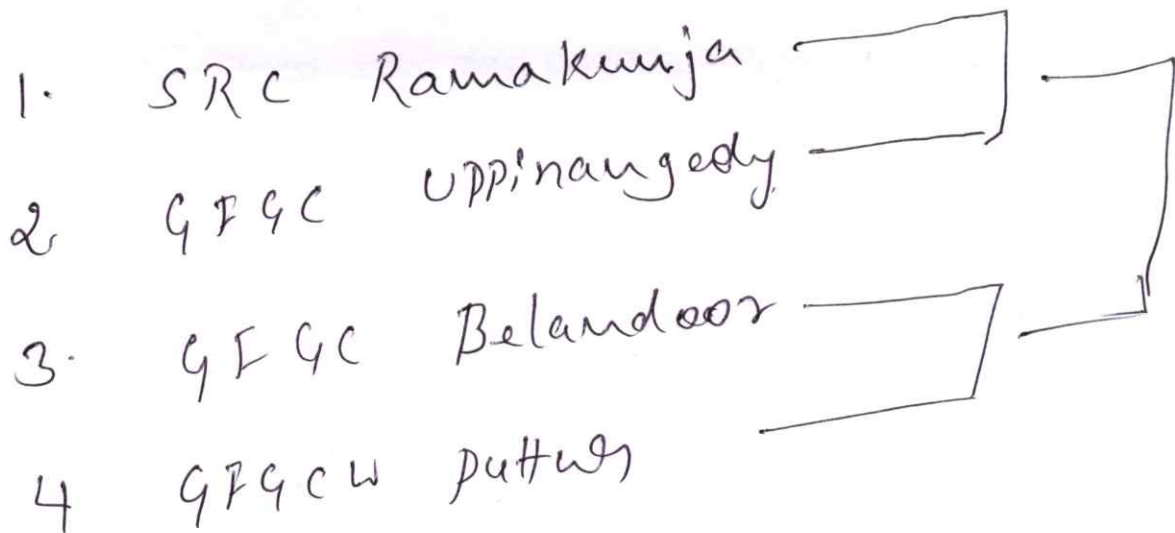 1. SRC Ramakunja
2 GFGC Uppinangedy
3. GFGC Belandoor
4 GFGCW Puttur